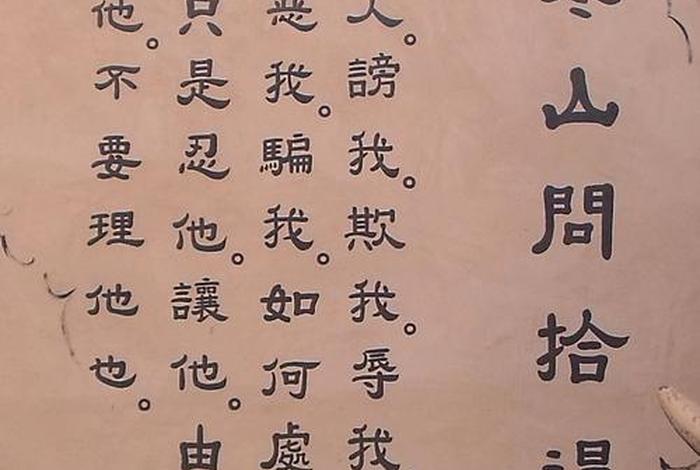 寒山問拾得
人。謗我。欺我。辱我
惡我。騙我。如何處
只是忍他。讓他。由
他。不要理他也。